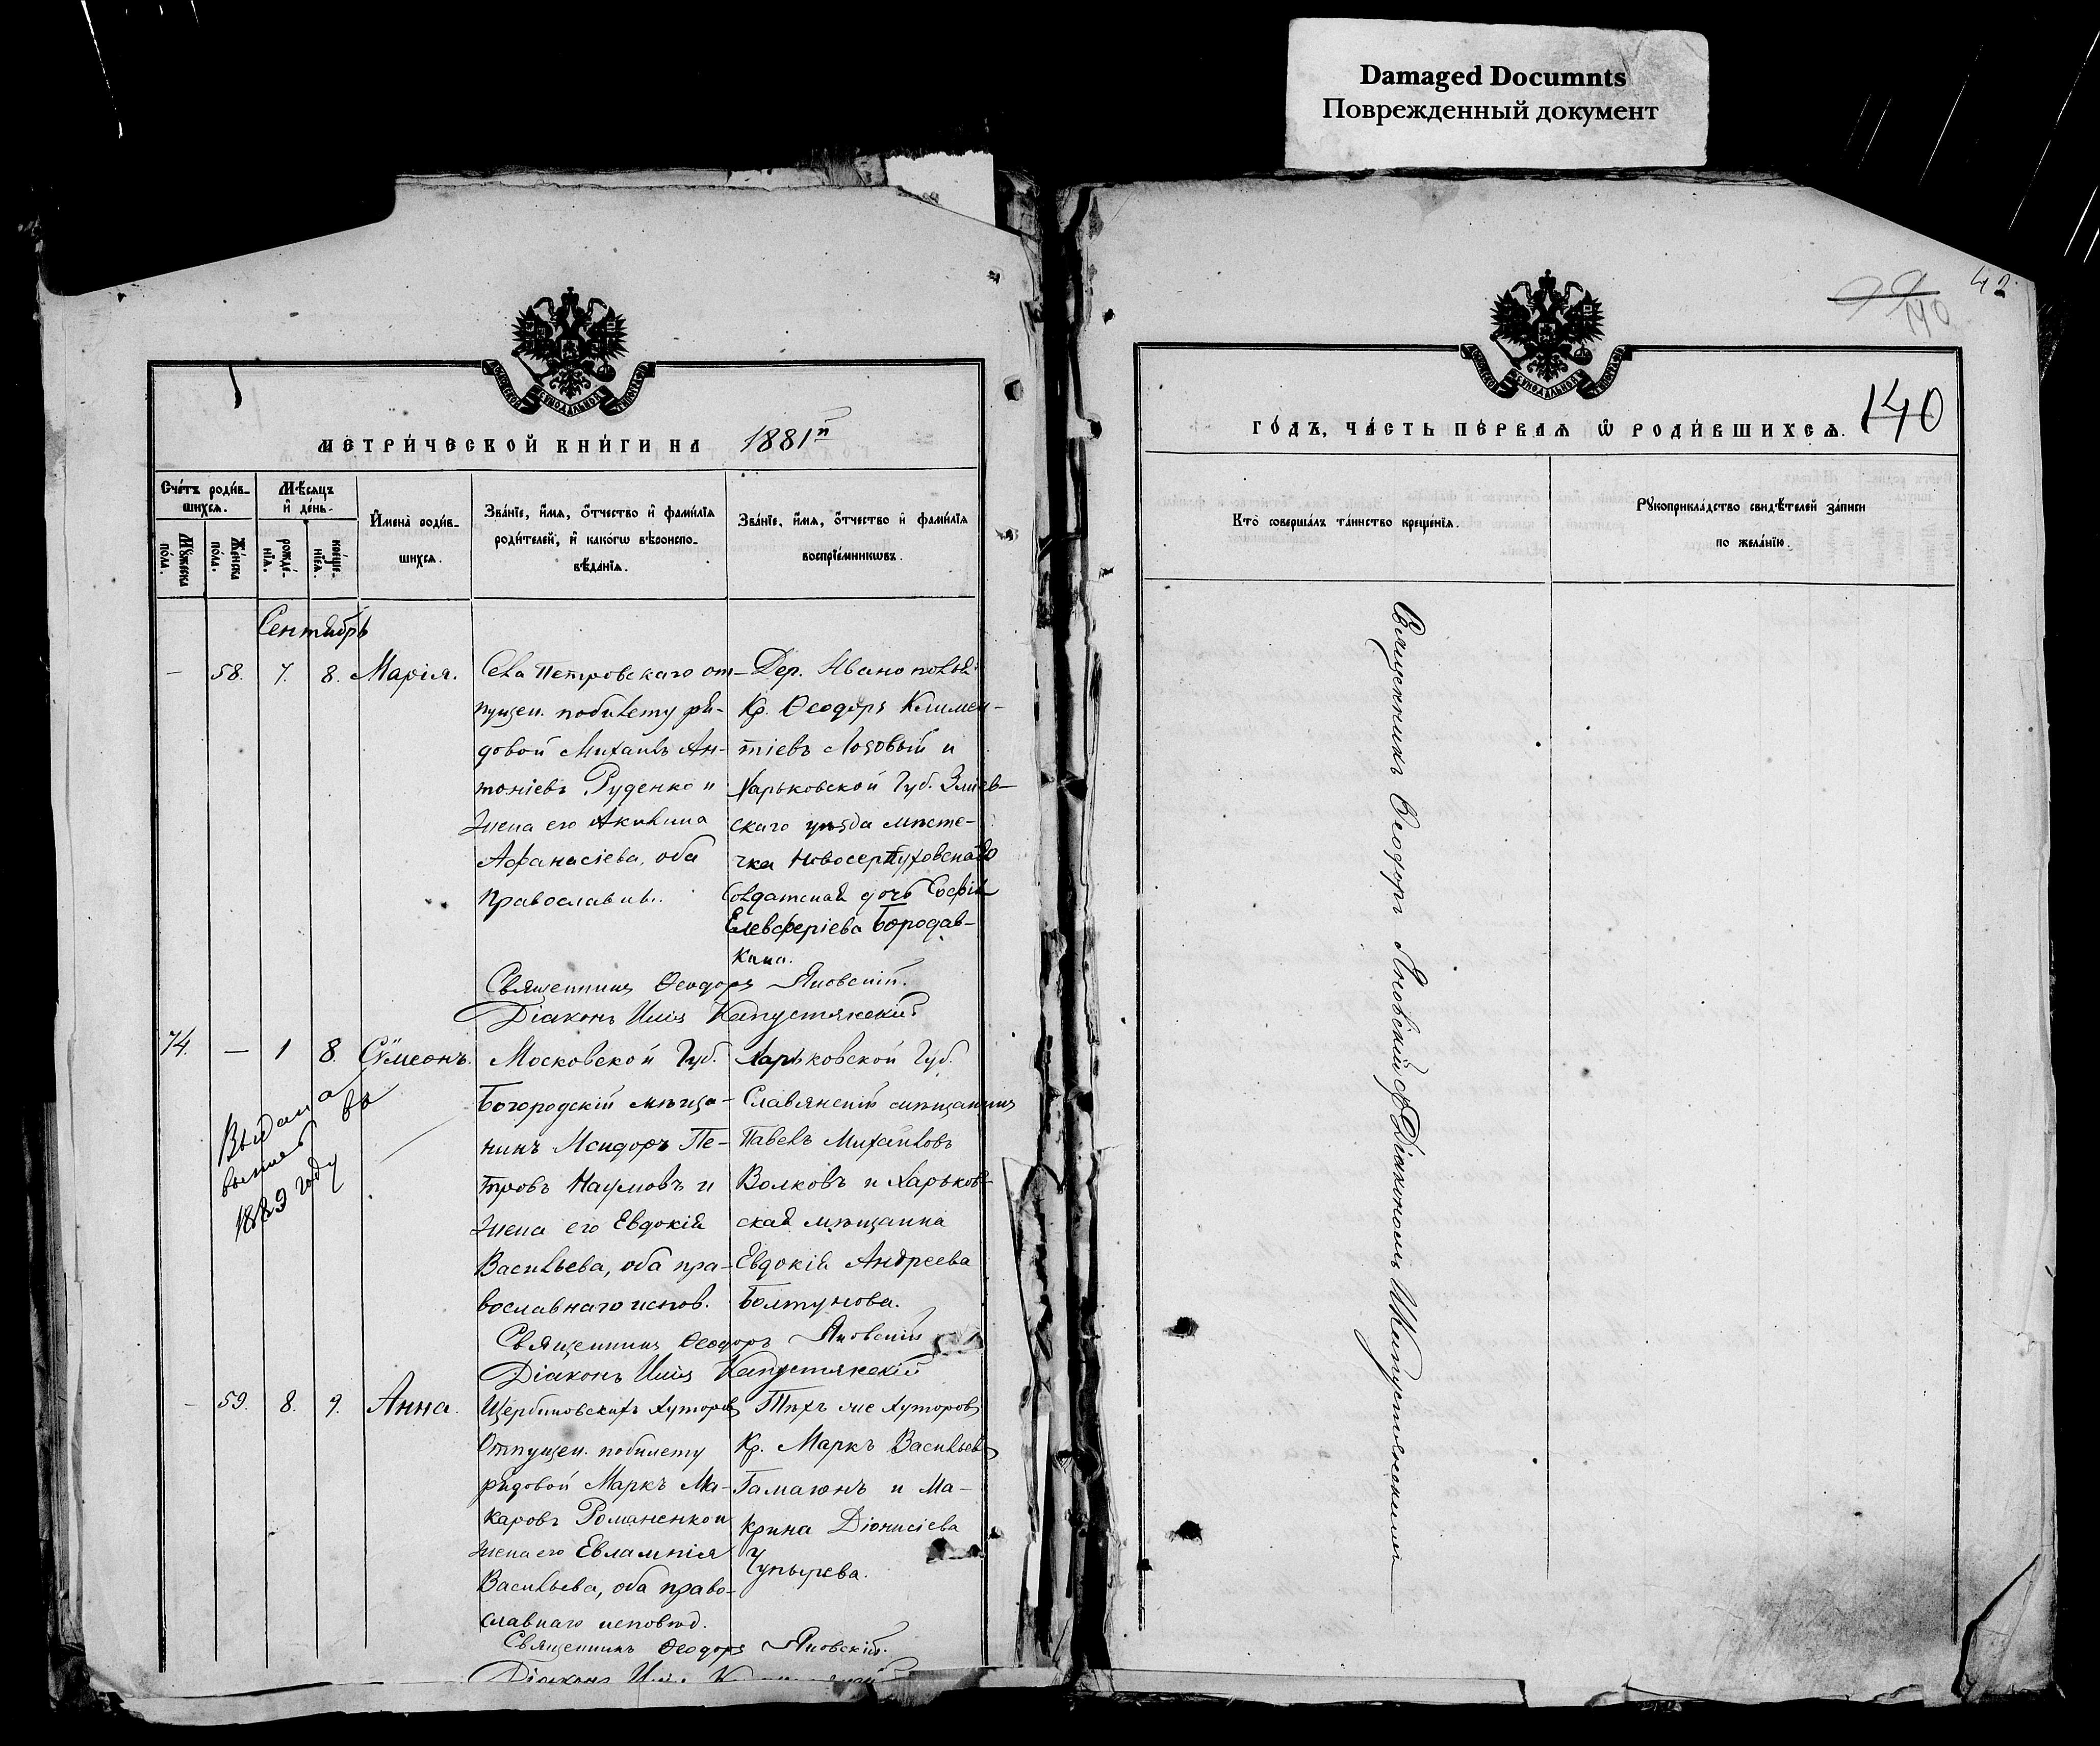 Damaged Documnts
Поврежденный документ
МЕТРИЧЕСКОЙ КНИГИ НА 1881й
Счетъ родив-
шихся.
Мѣсяцъ
и день.
Имена родив-
шихся.
Званіе, имя, отчество и фамилія
родителей, и какогѡ вѣроиспо-
вѣданія.
Званіе, имя, отчество и фамилія
воспріемниковъ.
Мужеска пола.
Женска пола.
рожде-
нія.
креще-
нія.
Сентябрь
— 58. 7. 8. Марія.
Села Петровскаго от-
пущен. по билету ря-
довой Михаилъ Ан-
тоніевъ Руденко и
жена его Акилина
Афанасіева, оба
православн.
Дер. Иванополья
Кр. Ѳеодоръ Климен-
тіевъ Лозовый и
Харьковской Губ. Зміев-
скаго уѣзда мѣсте-
чка Новосерпуховскаго
Солдатская дочь Софія
Елевферіева Бородав-
кина.
Священникъ Ѳеодоръ Яновскій.
Діаконъ Илія Капустянскій
74. — 1 8. Сѵмеонъ.
Московской Губ.
Богородскій мѣща-
нинъ Исидоръ Пе-
тровъ Наумовъ и
жена его Евдокія
Васильева, оба пра-
вославнаго испов.
Харьковской Губ.
Славянскій мѣщанинъ
Павелъ Михаиловъ
Волковъ и Харьков-
ская мѣщанка
Евдокія Андреева
Болтунова.
Выдана
въ
году
Священникъ Ѳеодоръ Яновскій
Діаконъ Илія Капустянскій
— 59. 8. 9. Анна.
Щербиновскихъ хуторовъ
Отпущен. по билету
рядовой Маркъ Ма-
каровъ Романенко и
жена его Евлампія
Васильева, оба право-
славнаго исповѣд.
Тѣхъ же хуторовъ
Кр. Маркъ Васильевъ
Гамаюнъ и Ма-
крина Діонисіева
Чупырева.
Священникъ Ѳеодоръ Яновскій.
Діаконъ Илія
42.
140
ГОДЪ, ЧАСТЬ ПЕРВАЯ Ѡ РОДИВШИХСЯ. 140
Кто совершалъ таинство крещенія.
Рукоприкладство свидѣтелей записи
по желанію.
Священникъ Ѳеодоръ Яновскій съ Діакономъ Капустянскимъ